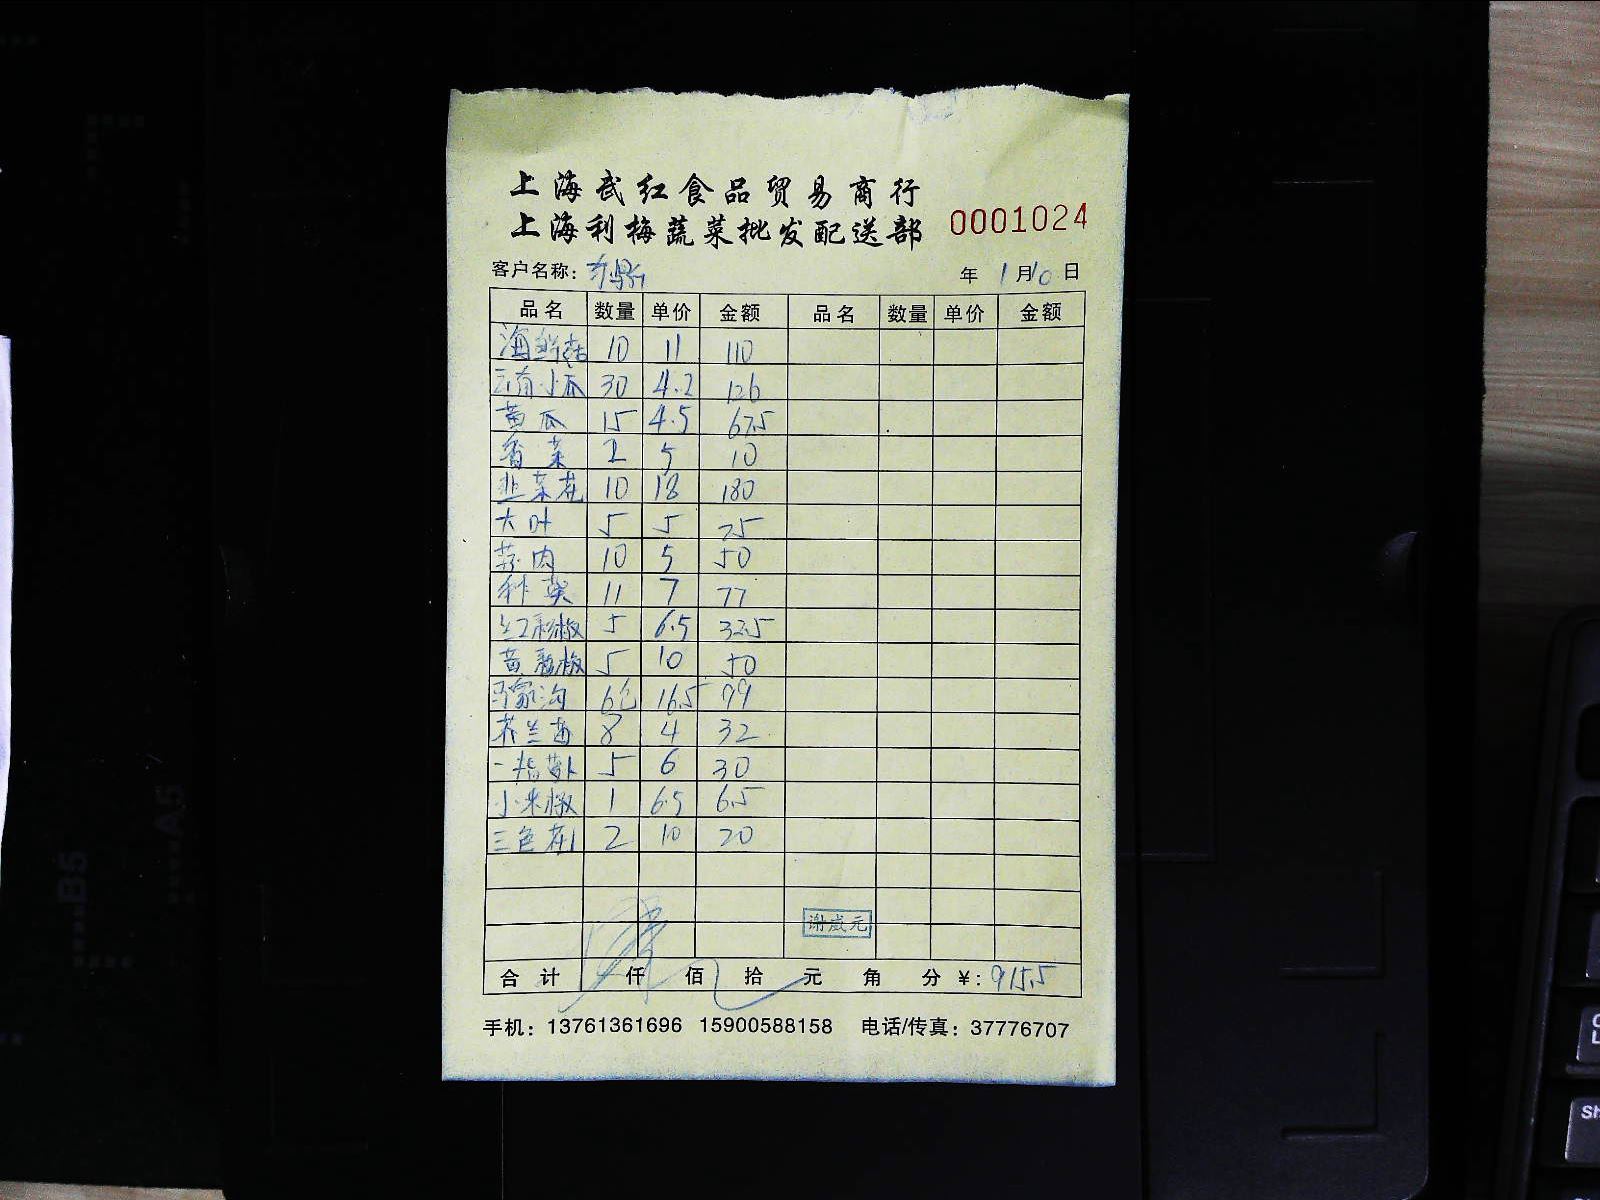 上海武红食品贸易商行
上海利梅蔬菜批发配送部 0001024
客户名称: 年 1月10日
品名 数量 单价 金额 品名 数量 单价 金额
海鲜菇 10 11 110
云南小瓜 30 4.2 126
黄瓜 15 4.5 67.5
香菜 2 5 10
韭菜花 10 18 180
大叶 5 5 25
蒜肉 10 5 50
11 7 77
红彩椒 5 6.5 32.5
黄彩椒 5 10 50
马家沟 6包 16.5 99
芥兰苗 8 4 32
一指萝卜 5 6 30
小米椒 1 6.5 6.5
三色花 2 10 20
谢成元
合计 仟 佰 拾 元 角 分 ¥: 915.5
手机: 13761361696 15900588158 电话/传真: 37776707
B5
A5